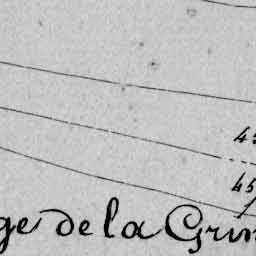 45
ge de la Grin